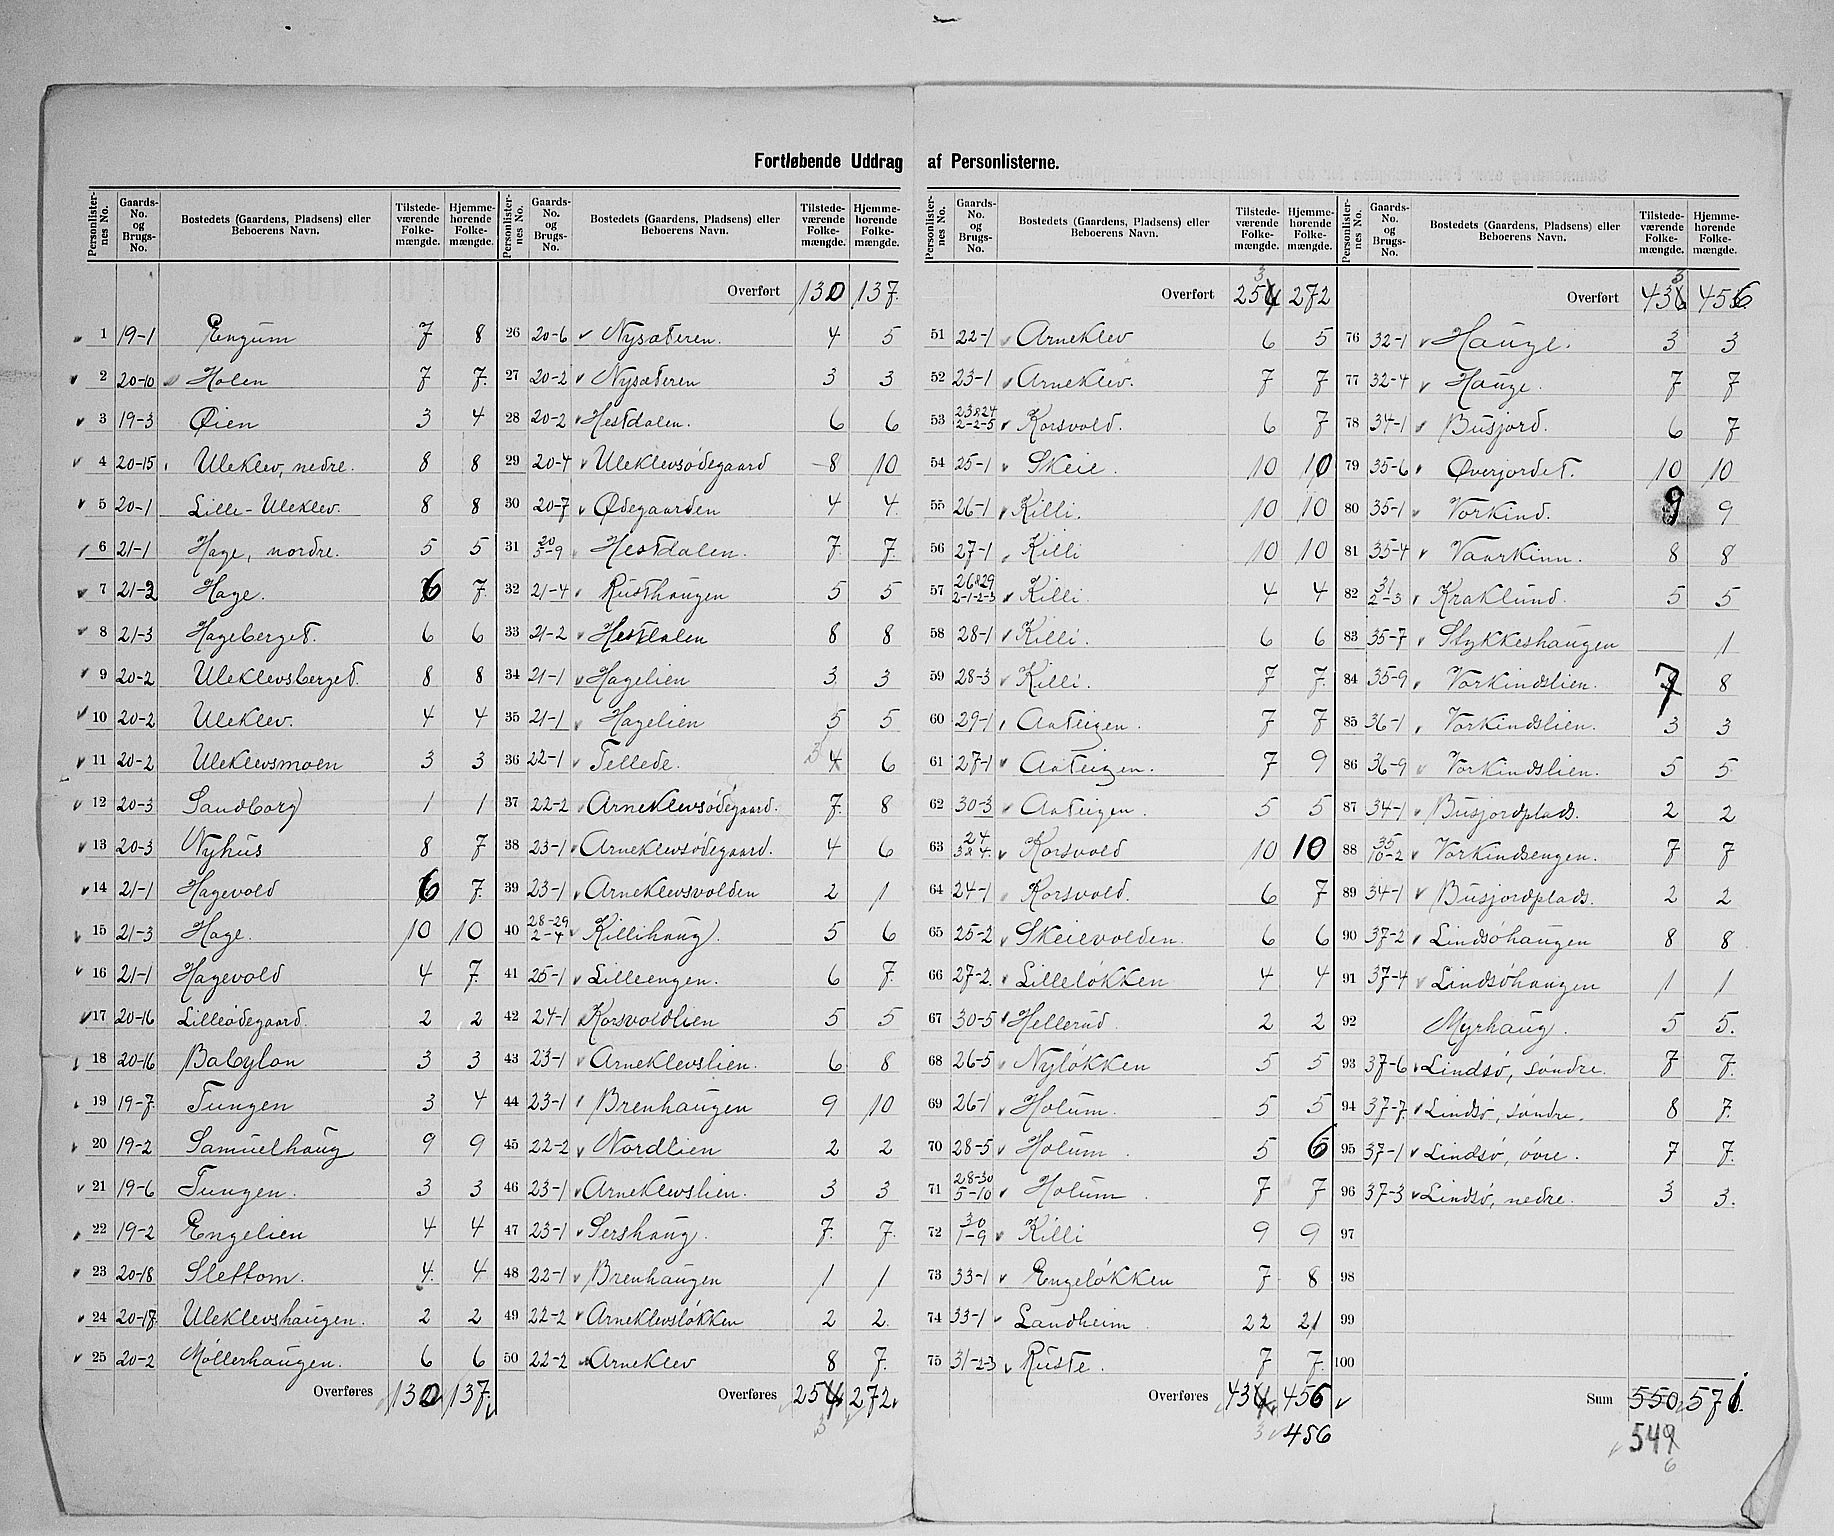 Fortløbende Uddrag af Personlisterne.
Personlister-nes No. Gaards-No. og Brugs-No. Bostedets (Gaardens, Pladsens) eller Beboerens Navn. Tilstede-værende Folke-mængde. Hjemme-hørende Folke-mængde.
1 19-1 Engum 7 8
2 20-10 Holen 7 7.
3 19-3 Øien 3 4
4 20-15 Uleklev, nedre. 8 8
5 20-1 Lille-Uleklev. 8 8
6 21-1 Hage, nordre. 5 5
7 21-2 Hage. 6 7.
8 21-3 Hageberget. 6 6
9 20-2 Uleklevsberget. 8 8
10 20-2 Uleklev. 4 4
11 20-2 Uleklevsmoen 3 3
12 20-3 Sandborg 1 1
13 20-3 Nyhus 8 7
14 21-1 Hagevold 6 7.
15 21-3 Hage. 10 10
16 21-1 Hagevold 4 7.
17 20-16 Lilleødegaard. 2 2
18 20-16 Babylon 3 3
19 19-7. Tungen 3 4
20 19-2 Samuelhaug 9 9
21 19-6 Tungen. 3 3
22 19-2 Engelien 4 4
23 20-18 Slettom. 4. 4
24 20-17 Uleklevshaugen. 2 2
25 20-2 Møllerhaugen. 6 6
Overføres 130 137.
Personlister-nes No. Gaards-No. og Brugs-No. Bostedets (Gaardens, Pladsens) eller Beboerens Navn. Tilstede-værende Folke-mængde. Hjemme-hørende Folke-mængde.
Overført 130 137.
26 20-6 Nysæteren. 4 5
27 20-2 Nysæteren 3 3
28 20-2 Hestdalen. 6 6
29 20-4 Uleklevsødegaard 8 10
30 20-7 Ødegaarden 4 4.
31 20 5-9 Hestdalen. 7. 7.
32 21-4 Rusthaugen 5 5
33 21-2 Hestdalen 8 8
34 21-1 Hagelien 3. 3
35 21-1 Hagelien 5 5
36 22-1 Tellede. 3 4 6
37 22-2 Arneklevsødegaard. 7. 8
38 23-1 Arneklevsødegaard. 4 6
39 23-1 Arneklevsvolden 2 1
40 28-29 2-4 Killihaug. 5 6
41 25-1 Lilleengen. 6 7.
42 24-1 Korsvoldlien 5 5
43 23-1 Arneklevslien. 6 8
44 23-1 Brenhaugen 9 10
45 22-2 Nordlien 2 2
46 23-1 Arneklevslien. 3 3
47 23-1 Sershaug. 7. 7.
48 22-1 Brenhaugen 1 1
49 22-2 Arneklevsløkken 2 2.
50 22-2 Arneklev 8 7.
Overføres 254 272
3
Personlister-nes No. Gaards-No. og Brugs-No. Bostedets (Gaardens, Pladsens) eller Beboerens Navn. Tilstede-værende Folke-mængde. Hjemme-hørende Folke-mængde.
3
Overført 254 272
51 22-1 Arneklev 6 5
52 23-1 Arneklev. 7 7
53 23&24 2-2-5 Korsvold. 6 7
54 25-1 Skeie. 10 10
55 26-1 Killi. 10 10
56 27-1 Killi 10 10
57 26&29 2-1-2-3 Killi. 4 4
58 28-1 Killi. 6 6
59 28-3 Killi. 7 7.
60 29-1 Aateigen. 7 7
61 27-1 Aateigen. 7 9
62 30-3 Aateigen. 5 5
63 24 3&4. Korsvold 10 10
64 24-1 Korsvold. 6 7
65 25-2 Skeievolden. 6 6
66 27-2. Lilleløkken 4 4
67 30-5 Hellerud. 2 2
68 26-5 Nyløkken 5 5
69 26-1 Holum. 5 5
70 28-5 Holum. 5 6
71 28-30 5-10 Holum. 7 7
72 30 1-9 Killi 9 9
73 33-1 Engeløkken 7. 8
74 33-1 Landheim. 22 21
75 31-23 Ruste. 7 7.
Overføres 434 456
3 456
Personlister-nes No. Gaards-No. og Brugs-No. Bostedets (Gaardens, Pladsens) eller Beboerens Navn. Tilstede-værende Folke-mængde. Hjemme-hørende Folke-mængde.
3
Overført 434 456
76 32-1 Hauge. 3 3
77 32-4 Hauge. 7 7
78 34-1 Busjord. 6 7
79 35-6 Øverjordet. 10 10
80 35-1 Vorkind. 9 9
81 35-4 Vaarkinn. 8 8
82 31 2-3 Kraklund. 5 5
83 35-7 Stykkeshaugen 1
84 35-9 Vorkindslien. 7 8
85 36-1 Vorkindslien. 3 3
86 36-9 Vorkindslien. 5 5
87 34-1 Busjordplads. 2 2
88 35 10-2 Vorkindsengen. 7 7
89 34-1 Busjordplads. 2 2
90 37-2 Lindsøhaugen 8 8
91 37-4 Lindsøhaugen 1 1
92 Myrhaug. 5 5.
93 37-6 Lindsø, søndre. 7 7.
94 37-7. Lindsø, søndre. 8 7.
95 37-1 Lindsø, øvre. 7 7.
96 37-3 Lindsø, nedre. 3 3.
97
98
99
100
Sum 550 571
549
6